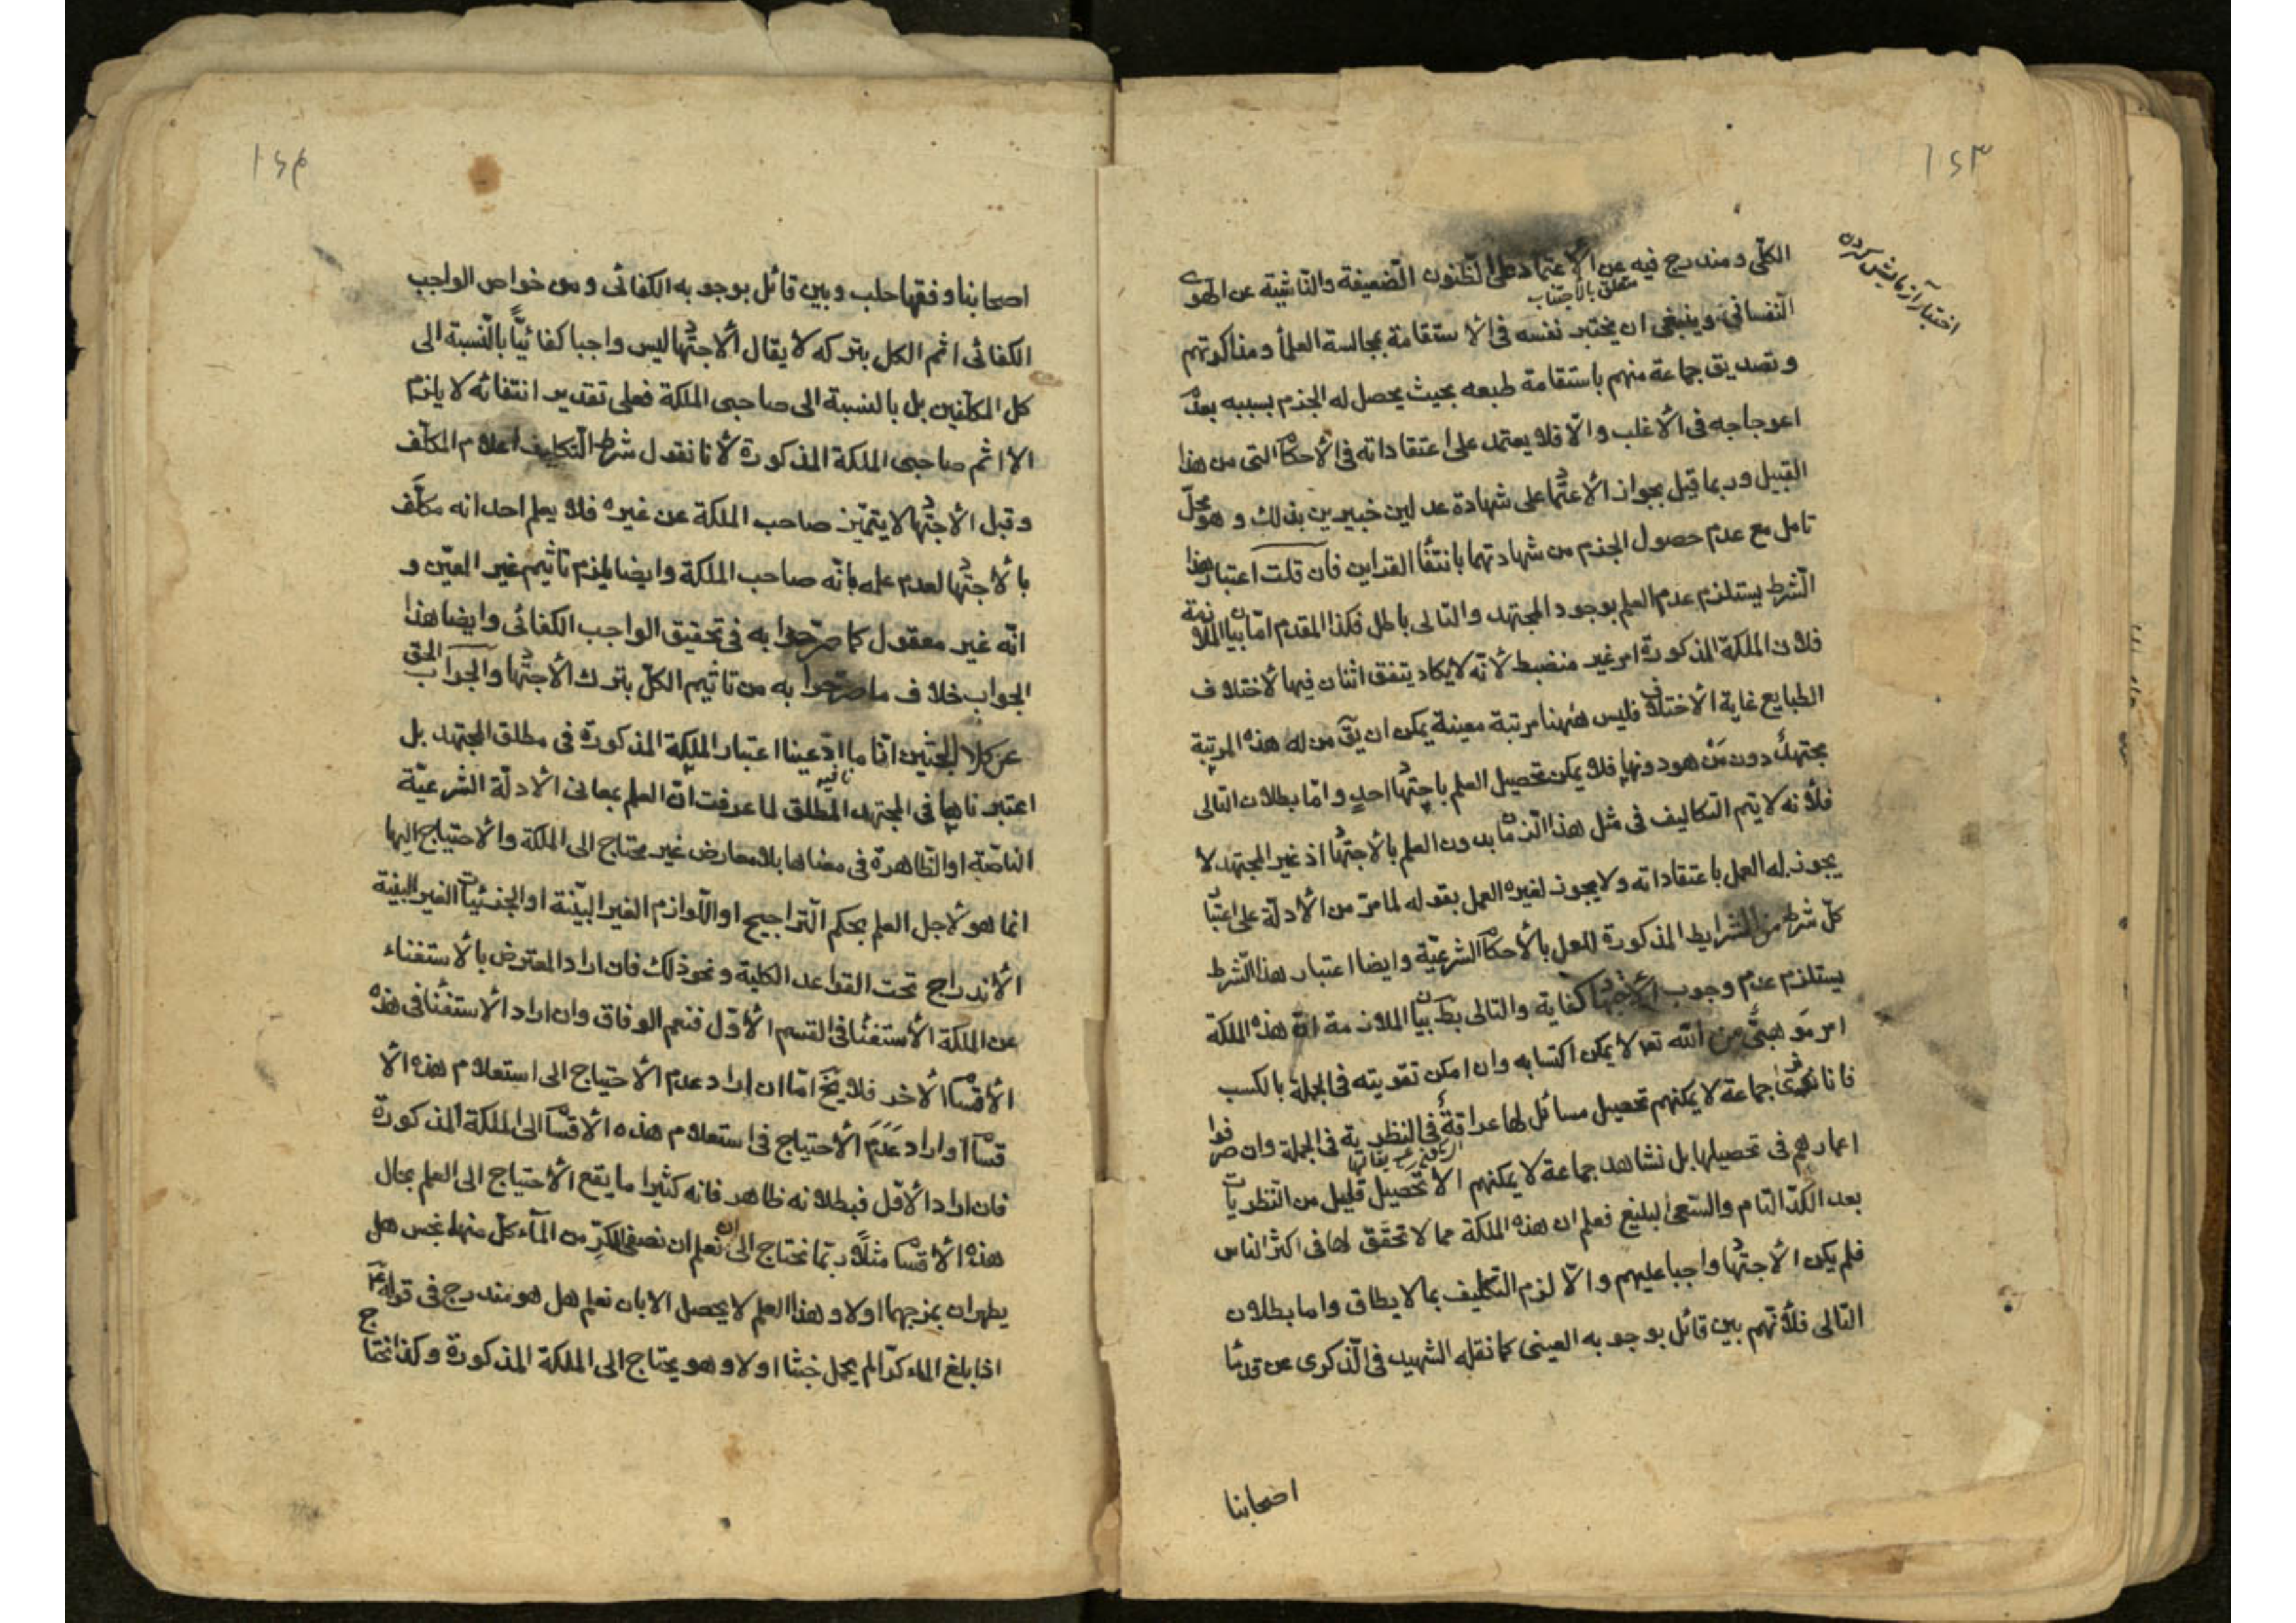 ١٤٣
اختبار آزمایش کردن
الكلّي ومندرج فيه عن الأعتماد على الظنون الضعيفة والناشية عن الهوى
متعلق بالاجتناب
النفساني وينبغي ان يختبر نفسه في الاستقامة بمجالسة العلمأ ومذاكرتهم
وتصديق جماعة منهم باستقامة طبعه بحيث يحصل له الجزم بسببه بعدم
اعوجاجه في الأغلب والّا فلا يعتمد على اعتقاداته في الأحكام التى من هذا
القبيل وربما قيل بجواز الأعتماد على شهادة عدلين خبيرين بذلك وهو محلّ
تامل مع عدم حصول الجزم من شهادتهما بانتفأ القراين فان قلت اعتبار هذا
الشرط يستلزم عدم العلم بوجود المجتهد والتالى باطل فكذا المقدم امّا بيان الملازمة
فلان الملكة المذكورة امر غير منضبط لأنّه لايكاد يتفق اثنان فيها لأختلاف
الطبايع غاية الأختلاف فليس ههنا مرتبة معينة يمكن ان يقّ من له هذه المرتبة
مجتهدٌ دون مَن هو دونها فلا يمكن تحصيل العلم باجتهاد احدٍ وامّا بطلان التالى
فلأنه لا يتم التكاليف في مثل هذا الزمان بدون العلم بالأجتهاد اذ غير المجتهد لا
يجوز له العمل باعتقاداته ولا يجوز لغيره العمل بقوله لما مرّ من الأدلّة على اعتبار
كلّ شرط من الشرايط المذكورة للعمل بالأحكام الشرعيّة وايضا اعتبار هذا الشرط
يستلزم عدم وجوب الأجتهاد كفاية والتالى بط بيان الملازمة انّ هذه الملكة
امر مَوهبيّ من الله تعه لأيمكن اكتسابه وان امكن تقويته في الجملة بالكسب
فانا نرى جماعة لا يمكنهم تحصيل مسائل لها عراقةٌ في النظرية في الجملة وان صرفوا
اعمارهم في تحصيلها بل نشاهد جماعة لا يمكنهم الأ تحصيل قليل من النظريات
بعد الكدّ التام والسّعى البليغ فعلم ان هذه الملكة مما لا تحقّق لها في اكثر الناس
فلم يكن الأجتهاد واجبا عليهم والّا لزم التكليف بما لا يطاق واما بطلان
التالى فلأنهم بين قائل بوجوبه العينى كما نقله الشهيد في الذكرى عن قدمأ
اصحابنا
١٤٤
اصحابنا وفقها حلب وبين قائل بوجوبه الكفائى ومن خواص الواجب
الكفائى اثم الكل بتركه لا يقال الأجتهاد ليس واجبا كفائيّاً بالنّسبة الى
كل المكلّفين بل بالنسبة الى صاحبى الملكة فعلى تقدير انتفائه لا يلزم
الا اثم صاحبى الملكة المذكورة لأنا نقول شرط التكليف اعلام المكلّف
وقبل الأجتهاد لا يتميّز صاحب الملكة عن غيره فلا يعلم احد انه مكلّف
بالأجتهاد لعدم علمه بانّه صاحب الملكة وايضا يلزم تأثيم غير المعيّن و
انّه غير معقول كما صرّحوا به في تحقيق الواجب الكفائى وايضا هذا
الجواب خلاف ما صرّحوا به من تاثيم الكلّ بترك الأجتهاد والجواب الحق
عن كلا البحثين انّا ما ادّعينا اعتبار الملكة المذكورة في مطلق المجتهد بل
اعتبرناها في المجتهد المطلق لما عرفت انّ العلم بمعانى الأدلّة الشرعيّة
الناصّة او الظاهرة في معناها بلا معارض غير محتاج الى الملكة والاحتياج اليها
انما هو لأجل العلم بحكم التراجيح او اللّوازم الغير البيّنة او الجزئيات الغير البينة
الأندراج تحت القواعد الكلية ونحو ذلك فان اراد المعترض بالأستغناء
عن الملكة الأستغنأ في القسم الأوّل فنعم الوفاق وان اراد الأستغنأ في هذه
الأقسام الأخر فلا يخّ امّا ان اراد عدم الأحتياج الى استعلام هذه الأ
قسام او اراد عَدَمَ الأحتياج في استعلام هذه الاقسام الى الملكة المذكورة
فان اراد الأوّل فبطلانه ظاهر فانه كثيرا ما يقع الأحتياج الى العلم بحال
هذه الأقسام مثلاً ربّما نحتاج الى ان نعلم ان نصفى الكرّ من المآء كلّ منهما نجس هل
يطهران بمزجهما اولا وهذا العلم لا يحصل الا بان نعلم هل هو مندرج في قوله عم
اذا بلغ الماء كرّا لم يحمل خبثا اولا وهو يحتاج الى الملكة المذكورة وكذا نحتاج